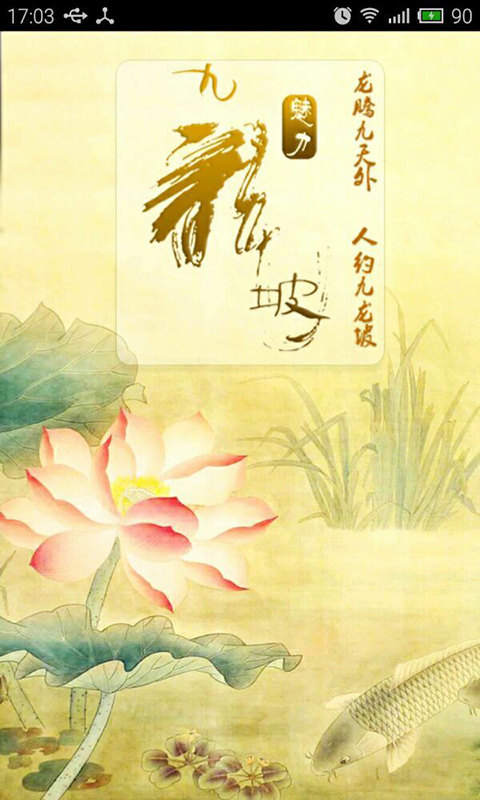 17:03
90
九龍坡
魅力
龙腾九天外
人约九龙坡